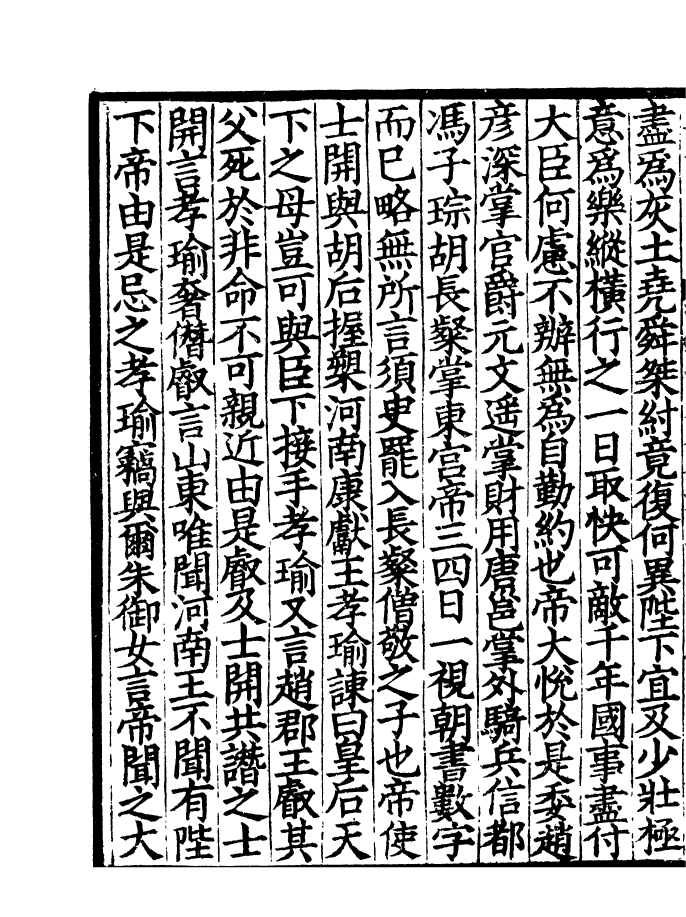 盡爲灰土堯舜桀紂竟復何異陛下宜及少壯極
意爲樂縱橫行之一日取快可敵千年國事盡付
大臣何慮不辦無為自勤約也帝大悅於是委趙
彦深掌官爵元文遥掌財用唐邕掌外騎兵信都
馮子琮胡長粲掌東宮帝三四日一視朝書數字
而已略無所言須㬰罷入長粲僧敬之子也帝使
士開與胡后握槊河南康獻王孝瑜諫曰皇后天
下之母豈可與臣下接手孝瑜又言趙郡王叡其
父死於非命不可親近由是叡及士開共譖之士
開言孝瑜奢僭叡言山東唯聞河南王不聞有陛
下帝由是忌之孝瑜竊與爾朱御女言帝聞之大